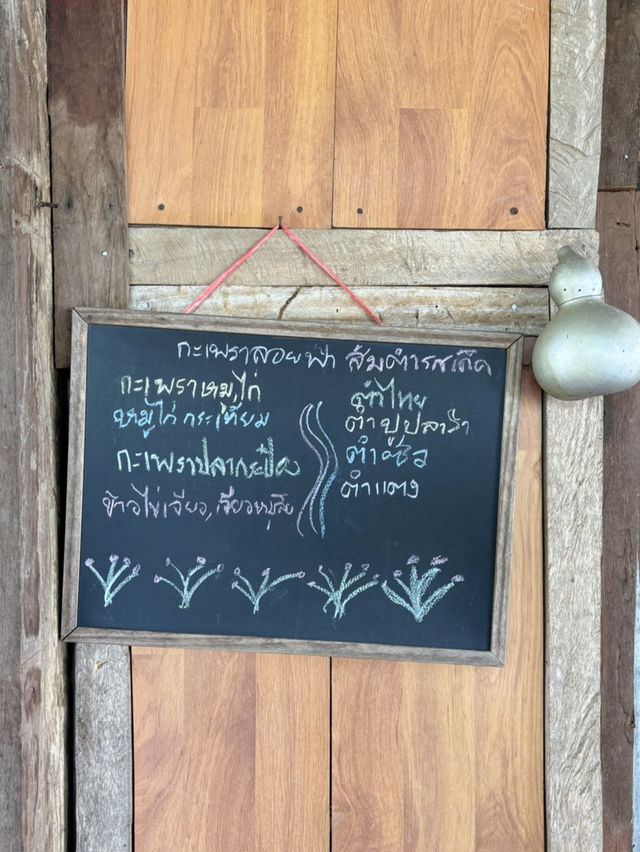 กะเพราลอยฟ้า
กะเพราหมู,ไก่
หมู,ไก่ กระเทียม
กะเพราปลากระป๋อง
ข้าวไข่เจียว, เจียวหมูสับ
ส้มตำรสเด็ด
ตำไทย
ตำปูปลาร้า
ตำซั่ว
ตำแตง